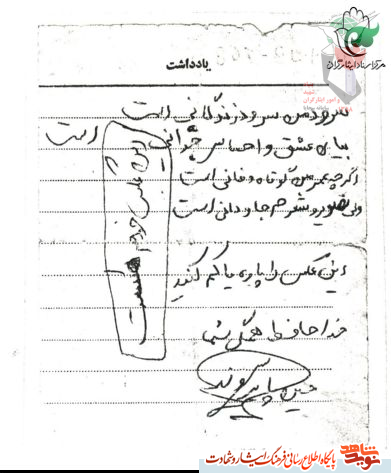 مرکز اسناد ایثارگران
یادداشت
سرود من سرود زندگانی است
بیان عشق و احساس جوانی است
اگرچه عمر من کوتاه و فانی است
ولی تصویر شعرم جاودانی است
این عکس خودم است
این عکس را پاره یا گم نکنید
خداحافظ همگی شما
نوید شاهد
پایگاه اطلاع رسانی فرهنگ ایثار و شهادت